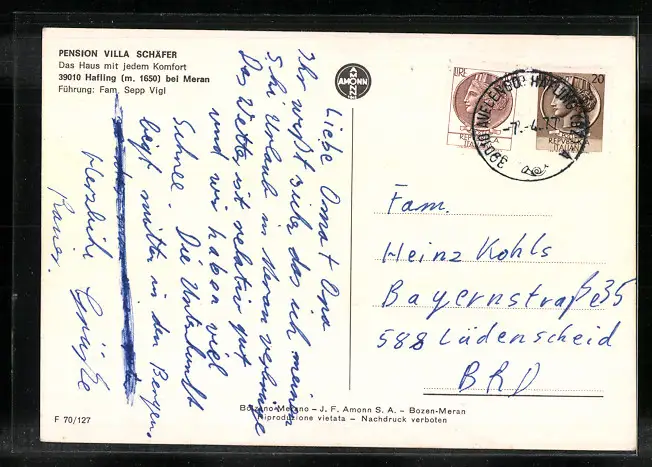 PENSION VILLA SCHÄFER
Das Haus mit jedem Komfort
39010 Hafling (m. 1650) bei Meran
Führung: Fam. Sepp Vigl
AMONN
Liebe Oma + Opa
Ihr wißt sicher das ich meinen
Ski Urlaub in Meran verbringe
Das Wetter ist relativ gut
und wir haben viel
Schnee. Die Unterkunft
liegt mitten in den Bergen.
Herzliche Grüße
Rainer.
LIRE
20
39010 AVELENGO HAFLING
REPUBBLICA
ITALIANA
REPUBBLICA
ITALIANA
Fam.
Heinz Kohls
Bayernstraße 35
588 Lüdenscheid
BRD
F 70/127
Bolzano-Merano – J. F. Amonn S. A. – Bozen-Meran
Riproduzione vietata – Nachdruck verboten